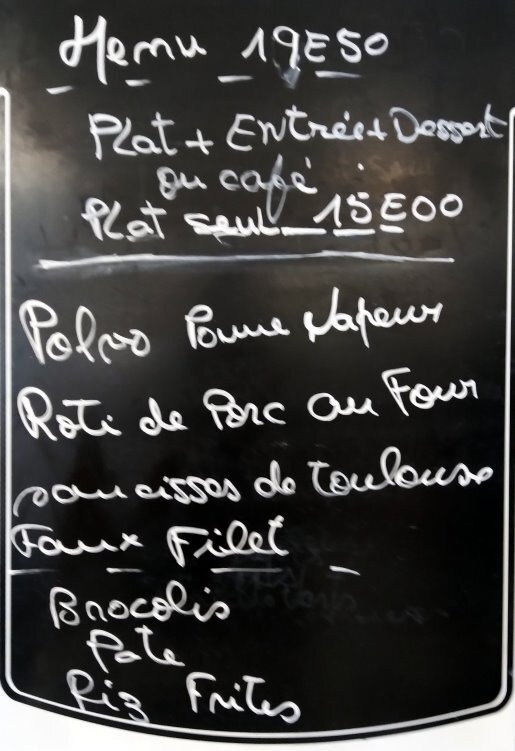 Menu 19E50
Plat + Entrée + Dessert
ou café
Plat seul 15E00
Polvo Pomme Vapeur
Roti de Porc au Four
saucisses de Toulouse
Faux Filet
Brocolis
Pate
Riz Frites